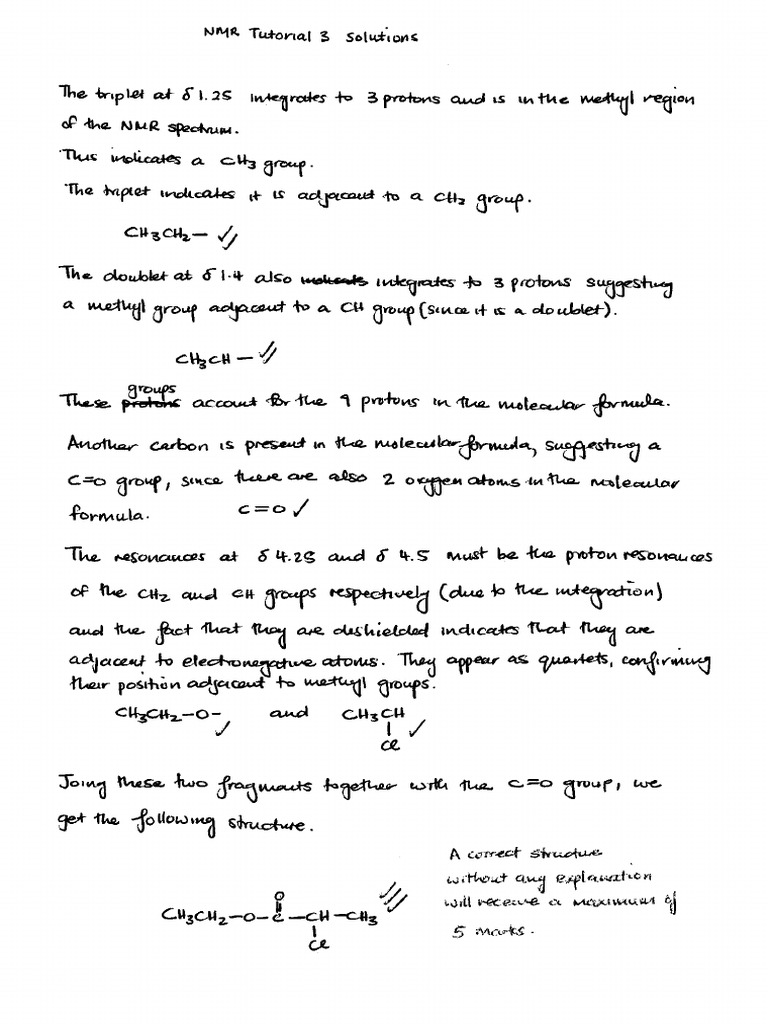 NMR Tutorial 3 Solutions
The triplet at δ 1.25 integrates to 3 protons and is in the methyl region
of the NMR spectrum.
This indicates a CH3 group.
The triplet indicates it is adjacent to a CH2 group.
CH3CH2— ✓✓
The doublet at δ 1.4 also indicate integrates to 3 protons suggesting
a methyl group adjacent to a CH group (since it is a doublet).
CH3CH — ✓✓
groups
These protons account for the 9 protons in the molecular formula.
Another carbon is present in the molecular formula, suggesting a
C=O group, since there are also 2 oxygen atoms in the molecular
formula. C=O ✓
The resonances at δ 4.25 and δ 4.5 must be the proton resonances
of the CH2 and CH groups respectively (due to the integration)
and the fact that they are deshielded indicates that they are
adjacent to electronegative atoms. They appear as quartets, confirming
their position adjacent to methyl groups.
CH3CH2—O— ✓ and CH3CH ✓
Cl
Joing these two fragments together with the C=O group, we
get the following structure.
A correct structure
without any explanation
will receive a maximum of
5 marks.
O
CH3CH2—O—C—CH—CH3 ✓✓✓
Cl